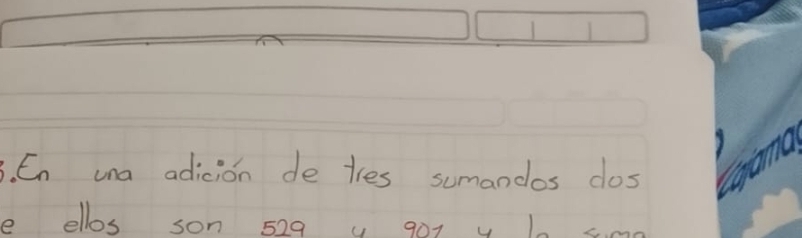 3. En una adición de tres sumandos dos
e ellos son 529 y 901 y la suma
Cajamar